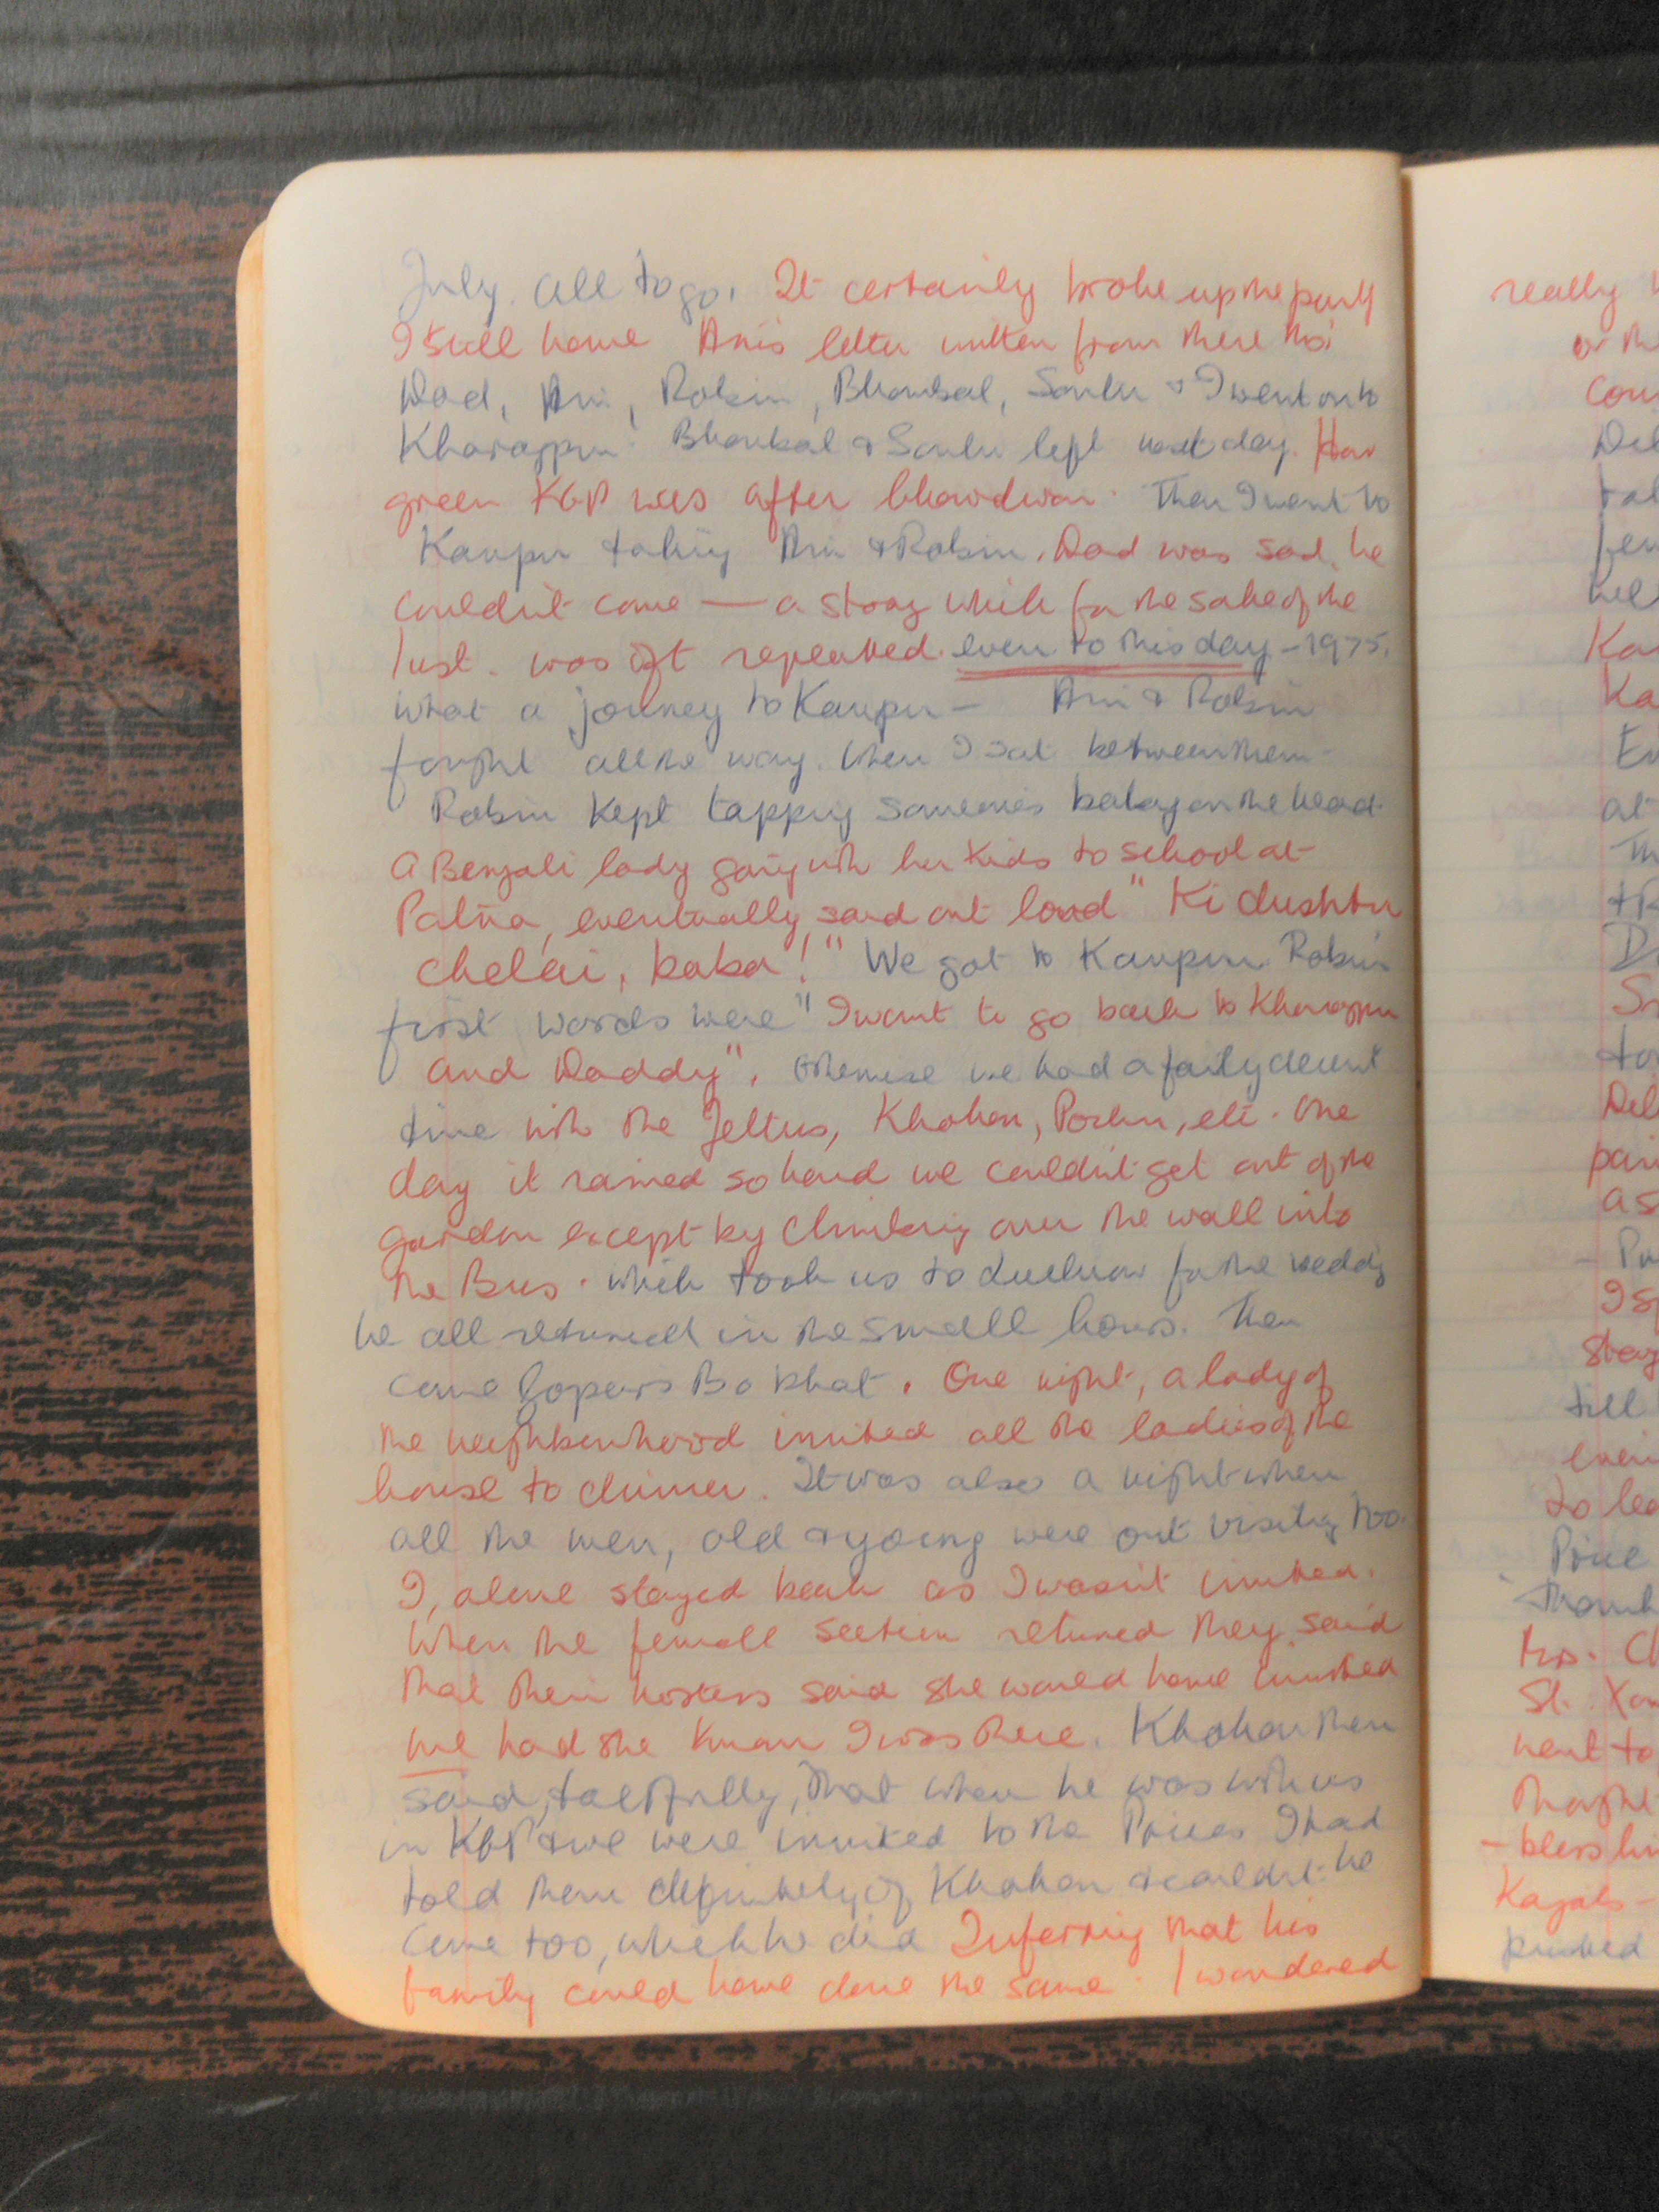 July. All to go. It certainly broke up the party
I still have Ani's letter written from there tho'
Dad, Ani, Robin, Bhombal, & I went on to
Kharagpur. Bhombal & left next day. How
green KGP was after. Then I went to
Kanpur taking Ani & Robin. Dad was sad he
couldn't come — a story which for the sake of the
lust. was oft repeated. even to this day - 1975.
What a journey to Kanpur — Ani & Robin
fought all the way. When I sat between them -
Robin kept tapping someone's baby on the head.
A Bengali lady going with her kids to school at
Patna, eventually said out loud "Ki dushtu
chelai, baba!" We got to Kanpur. Robin's
first words were "I want to go back to Kharagpur
and Daddy". Otherwise we had a fairly decent
time with the Jettus, Khokon, etc. One
day it rained so hard we couldn't get out of the
garden except by climbing over the wall into
the Bus. which took us to Lucknow for the wedding
We all returned in the small hours. Then
came Bo bhat. One night, a lady of
the neighbourhood invited all the ladies of the
house to dinner. It was also a night when
all the men, old & young were out visiting too.
I, alone stayed back as I wasn't invited.
When the female section returned they said
that their hostess said she would have invited
me had she known I was there. Khokon then
said, tactfully, that when he was with us
in KGP & we were invited to the Prices I had
told them definitely of Khokon & couldn't he
come too, which he did Inferring that his
family could have done the same. I wondered
really
or the
at
till
to
Price
St.
went to
thought
- bless him
pushed